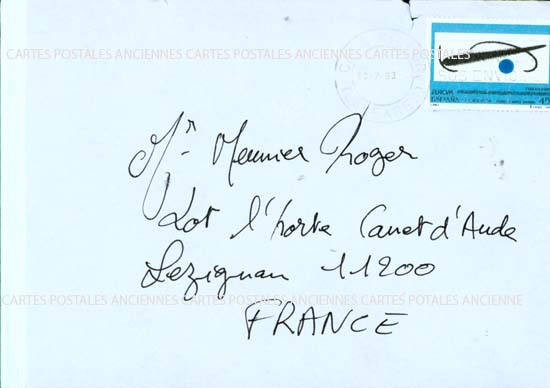 CARTES POSTALES ANCIENNES CARTES POSTALES ANCIENNES CARTES POSTALES ANCIENNE
EUROPA
ESPAÑA
45
Mr Meunier Roger
Lot l'horte Canet d'Aude
Lezignan 11200
CARTES POSTALES ANCIENNES CARTES POSTALES ANCIENNES CARTES POTALES ANCIENNE
FRANCE